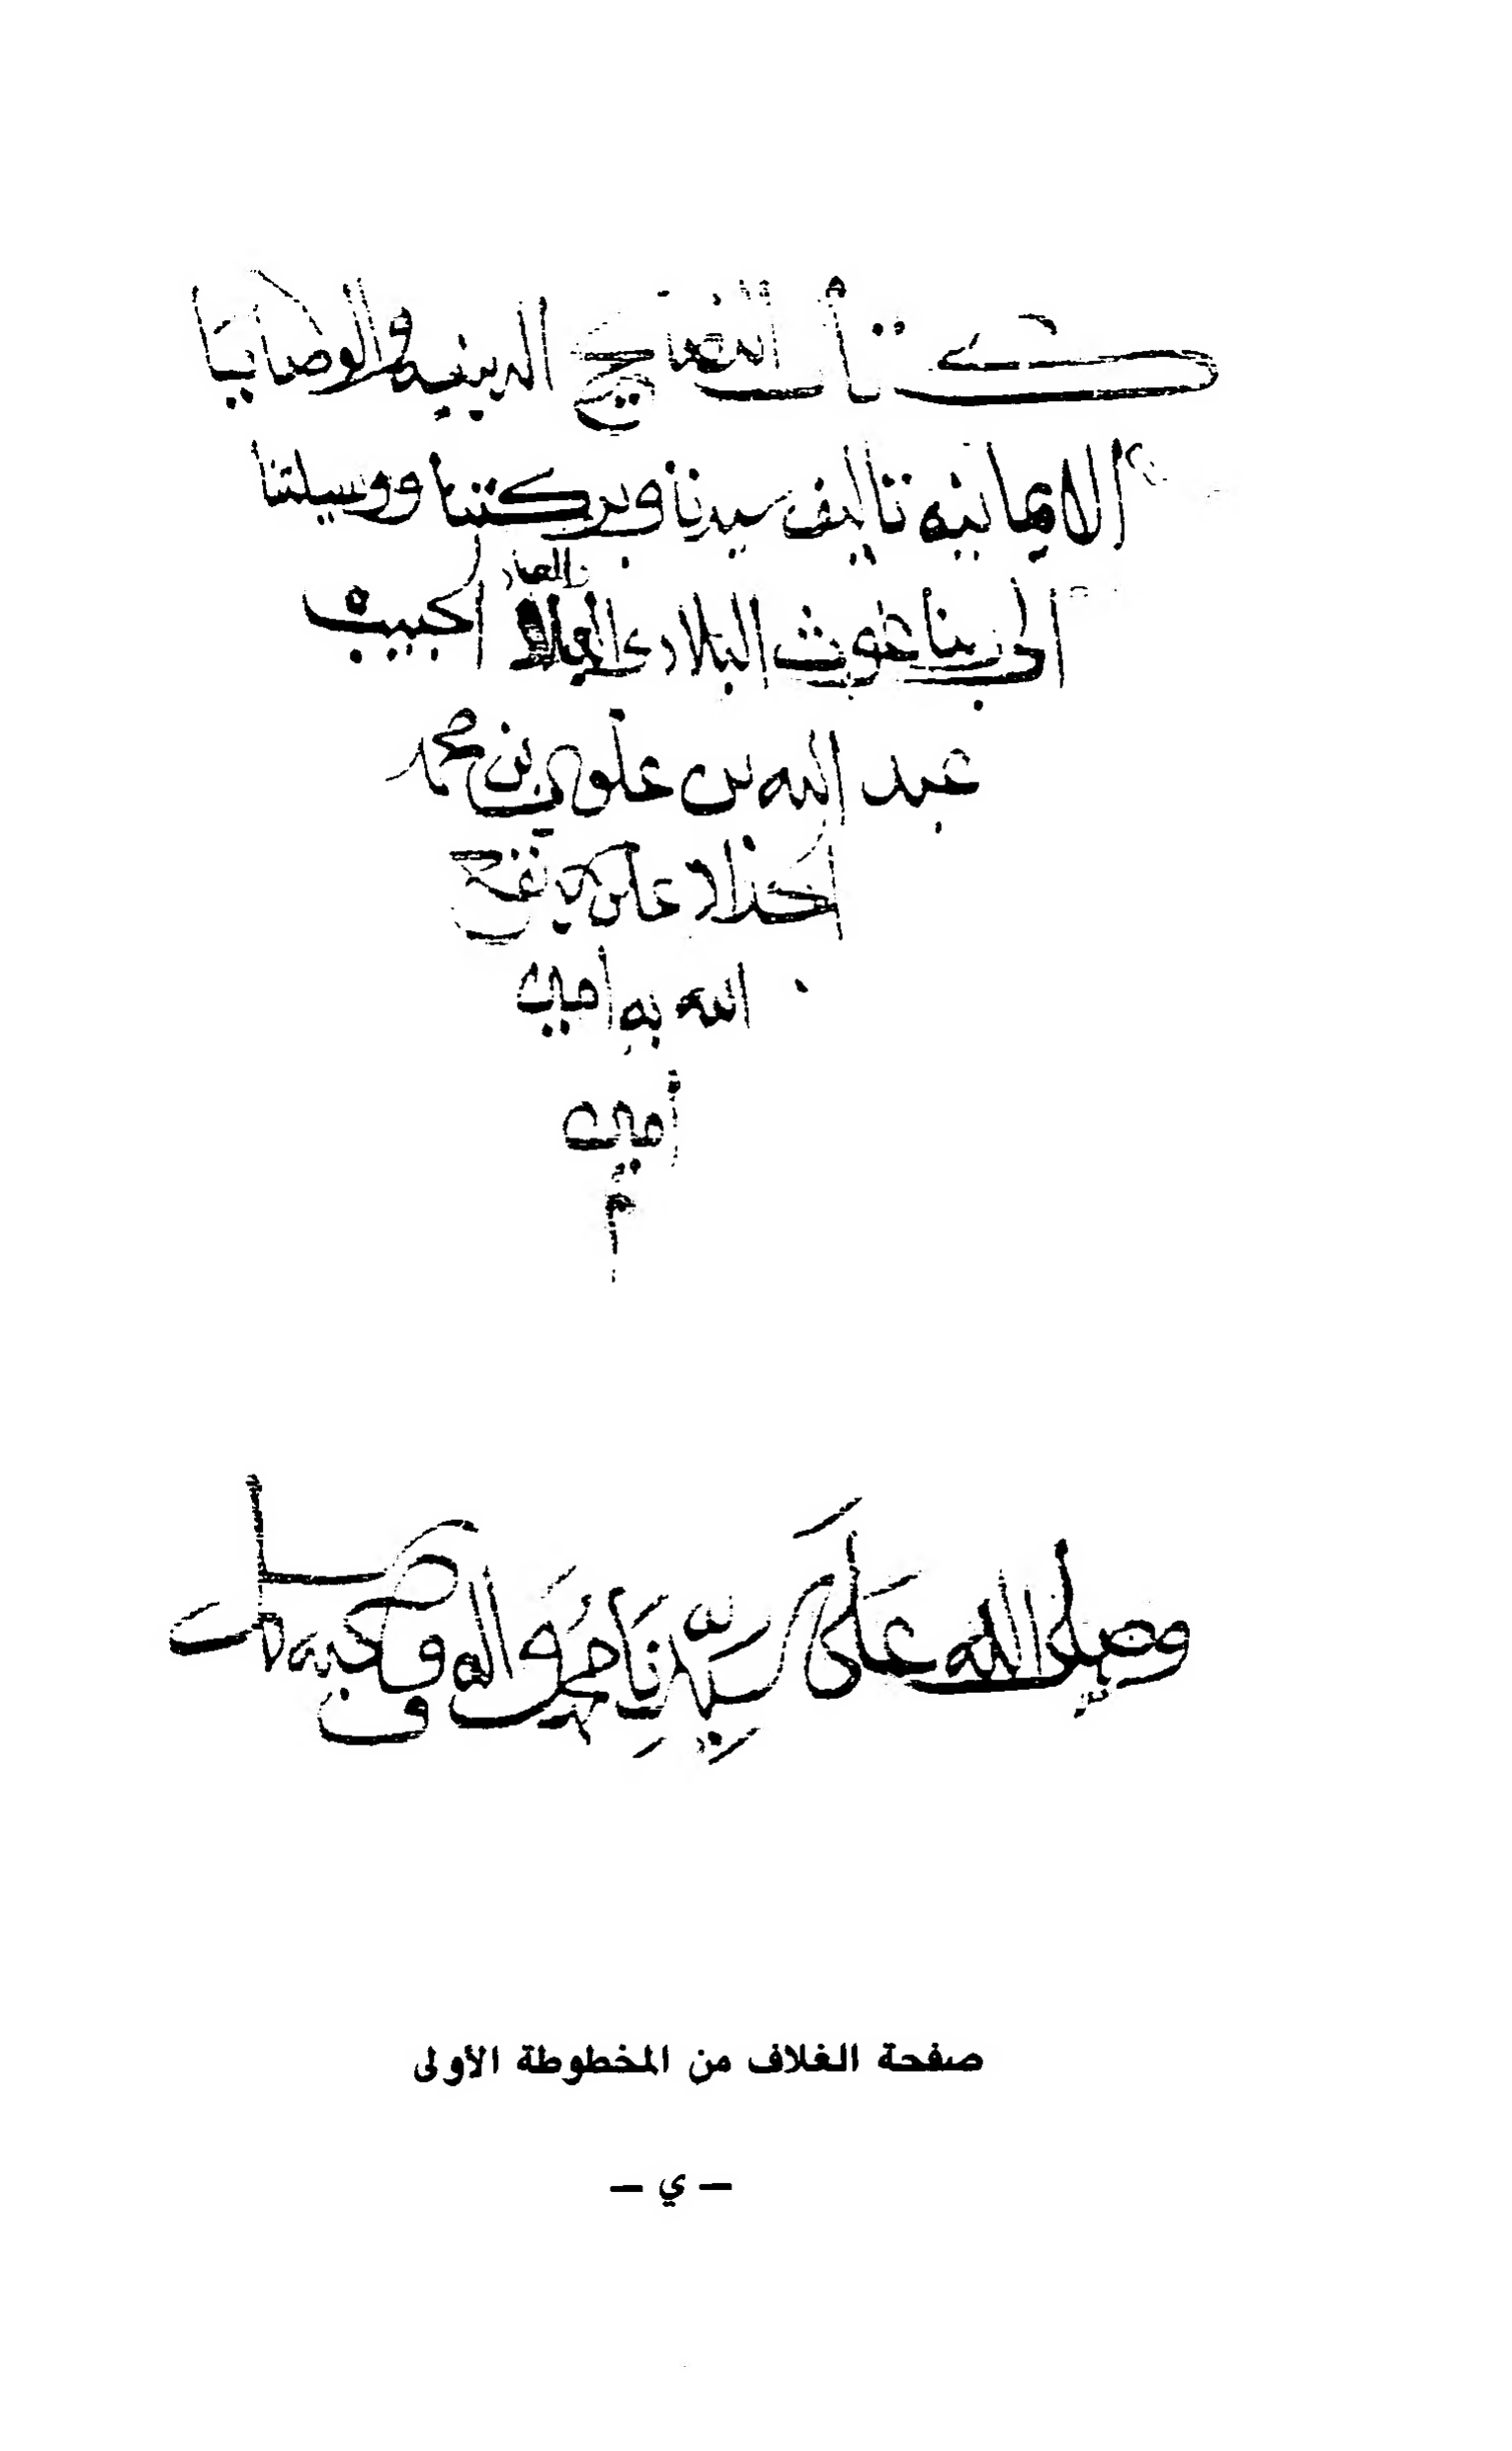 كتاب النصائح الدينيه والوصايا
الايمانيه تاليف سيدنا وبركتنا ووسيلتنا
الى ربنا غوث البلاد والعباد الحبيب
عبد الله بن علوي بن محمد
الحداد علوي نفع
الله به امين
امين
م
وصلى الله على سيدنا محمد واله وصحبه وسلم
صفحة الغلاف من المخطوطة الأولى
– ي –